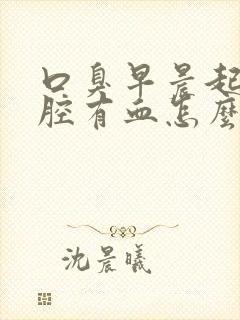 口臭早晨起
腔有血怎麼
沈晨曦